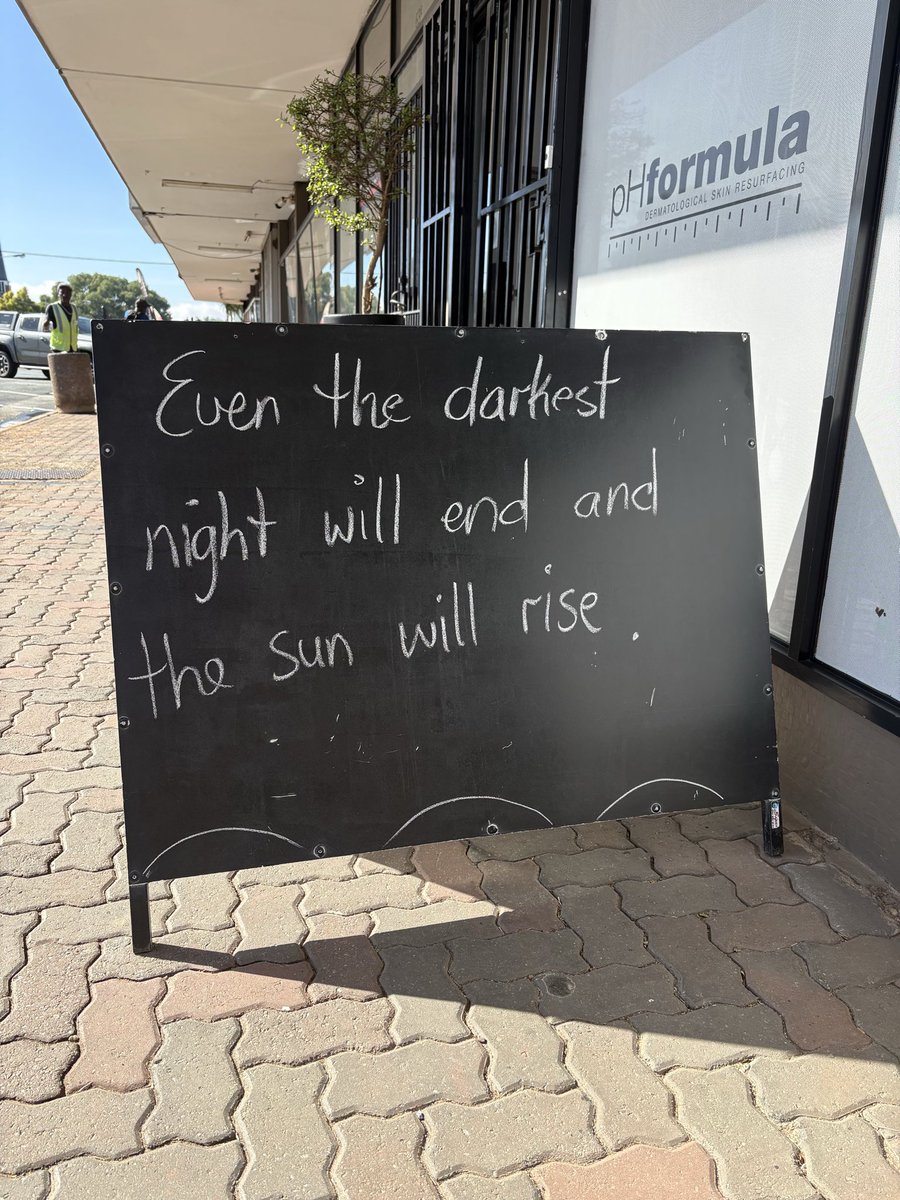 pHformula
DERMATOLOGICAL SKIN RESURFACING
Even the darkest
night will end and
the sun will rise.